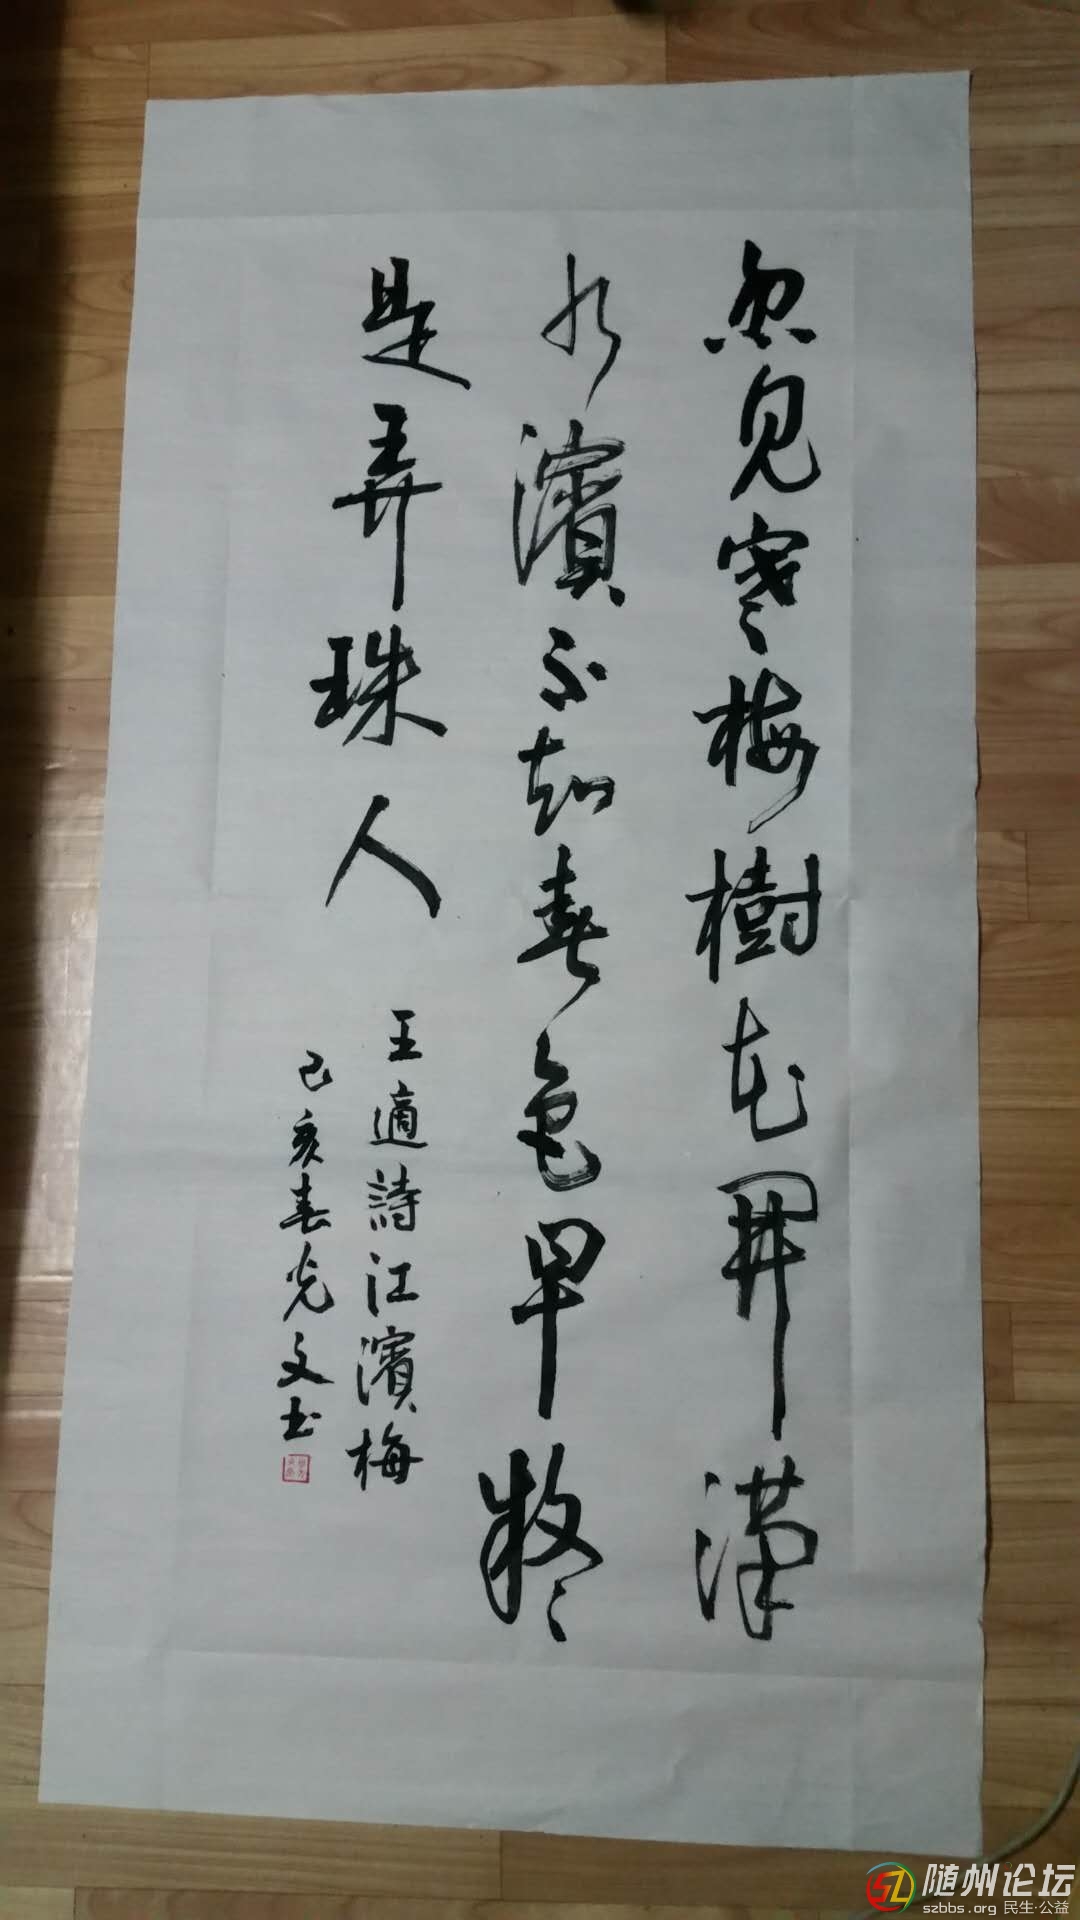 忽见寒梅樹花開漢
水濱不知春色早疑
是弄珠人
王適詩江濱梅
己亥春光文书
随州论坛
szbbs.org 民生·公益